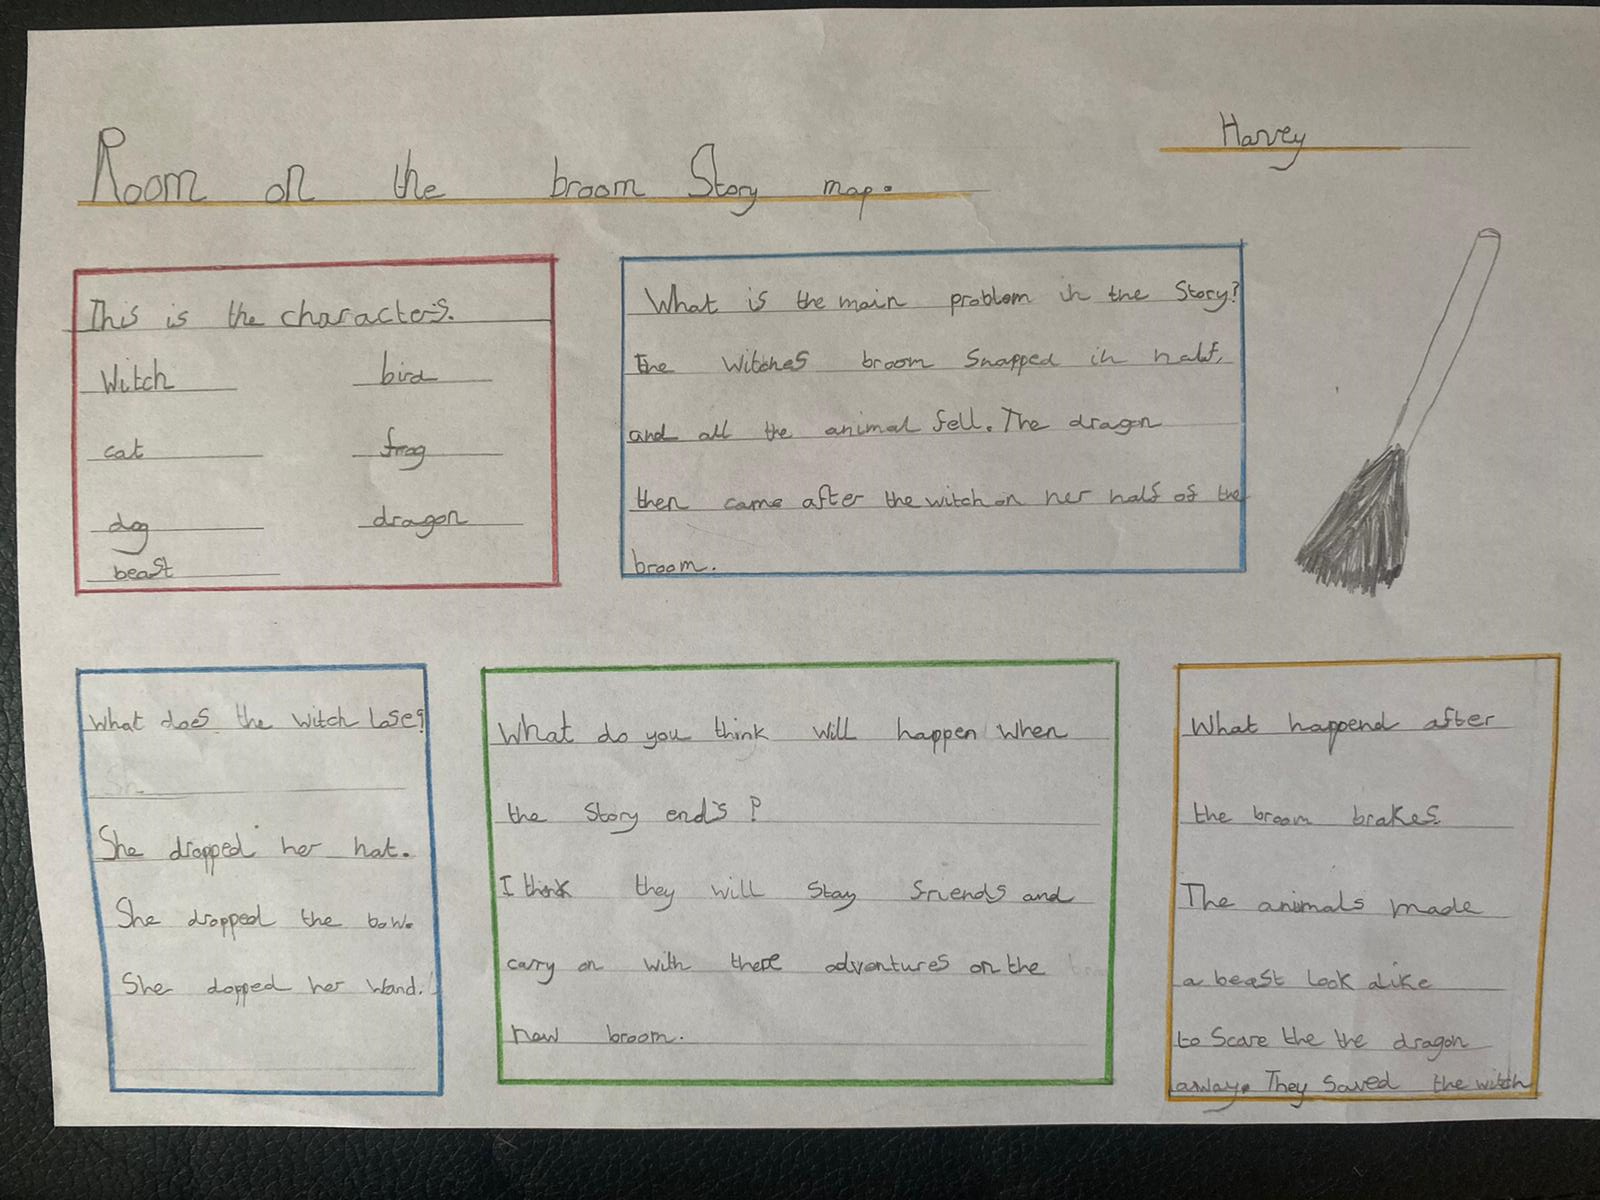 Harvey
Room on the broom Story map.
This is the characters.
Witch
bird
cat
frog
dog
dragon
beast
What is the main problem in the Story?
the Witches broom Snapped in half,
and all the animal fell. The dragon
then came after the witch on her half of the
broom.
What does the witch lose?
Sh
She dropped her hat.
She dropped the bow.
She dopped her Wand.
What do you think will happen When
the Story ends?
I think they will Stay friends and
carry on with there adventures on the
new broom.
What happend after
the broom brakes.
The animals made
a beast look alike
to Scare the the dragon
away. They Saved the witch